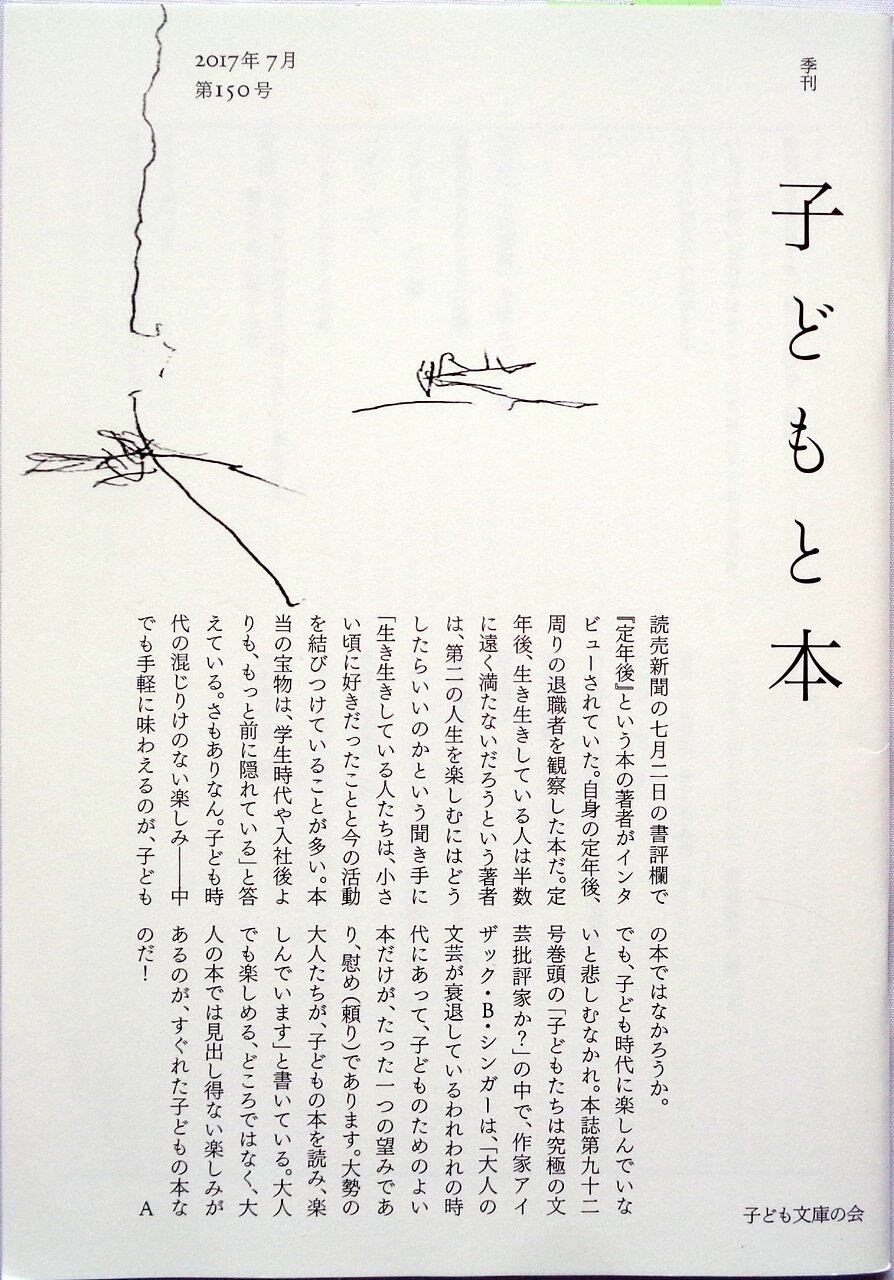 季刊
子どもと本
2017年 7月
第150号
読売新聞の七月二日の書評欄で
『定年後』という本の著者がインタ
ビューされていた。自身の定年後、
周りの退職者を観察した本だ。定
年後、生き生きしている人は半数
に遠く満たないだろうという著者
は、第二の人生を楽しむにはどう
したらいいのかという聞き手に
「生き生きしている人たちは、小さ
い頃に好きだったことと今の活動
を結びつけていることが多い。本
当の宝物は、学生時代や入社後よ
りも、もっと前に隠れている」と答
えている。さもありなん。子ども時
代の混じりけのない楽しみ――中
でも手軽に味わえるのが、子ども
の本ではなかろうか。
でも、子ども時代に楽しんでいな
いと悲しむなかれ。本誌第九十二
号巻頭の「子どもたちは究極の文
芸批評家か？」の中で、作家アイ
ザック・B・シンガーは、「大人の
文芸が衰退しているわれわれの時
代にあって、子どものためのよい
本だけが、たった一つの望みであ
り、慰め（頼り）であります。大勢の
大人たちが、子どもの本を読み、楽
しんでいます」と書いている。大人
でも楽しめる、どころではなく、大
人の本では見出し得ない楽しみが
あるのが、すぐれた子どもの本な
のだ！
A
子ども文庫の会